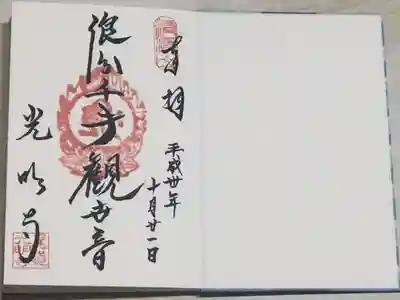 奉拝
平成卅年
十月廿一日
浪分千手觀世音
光明寺